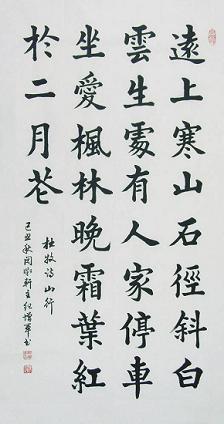 遠上寒山石徑斜白
雲生處有人家停車
坐愛楓林晚霜葉紅
於二月花
杜牧詩 山行
己丑秋軒主紀增軍书